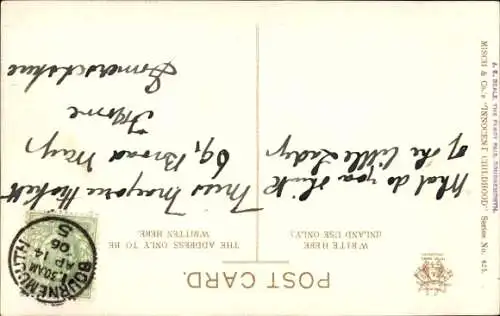 POST CARD.
WRITE HERE.
(INLAND USE ONLY.)
THE ADDRESS ONLY TO BE
WRITTEN HERE.
What do you think
of the little Lady.
Miss Marjorie
69, Broad Way,
Frome
Somersetshire
BOURNEMOUTH
7 30AM
AP 14
06
S
MISCH & Co.'s "INNOCENT CHILDHOOD" Series No. 425.
J. E. BEALE, THE FANCY FAIR, BOURNEMOUTH.